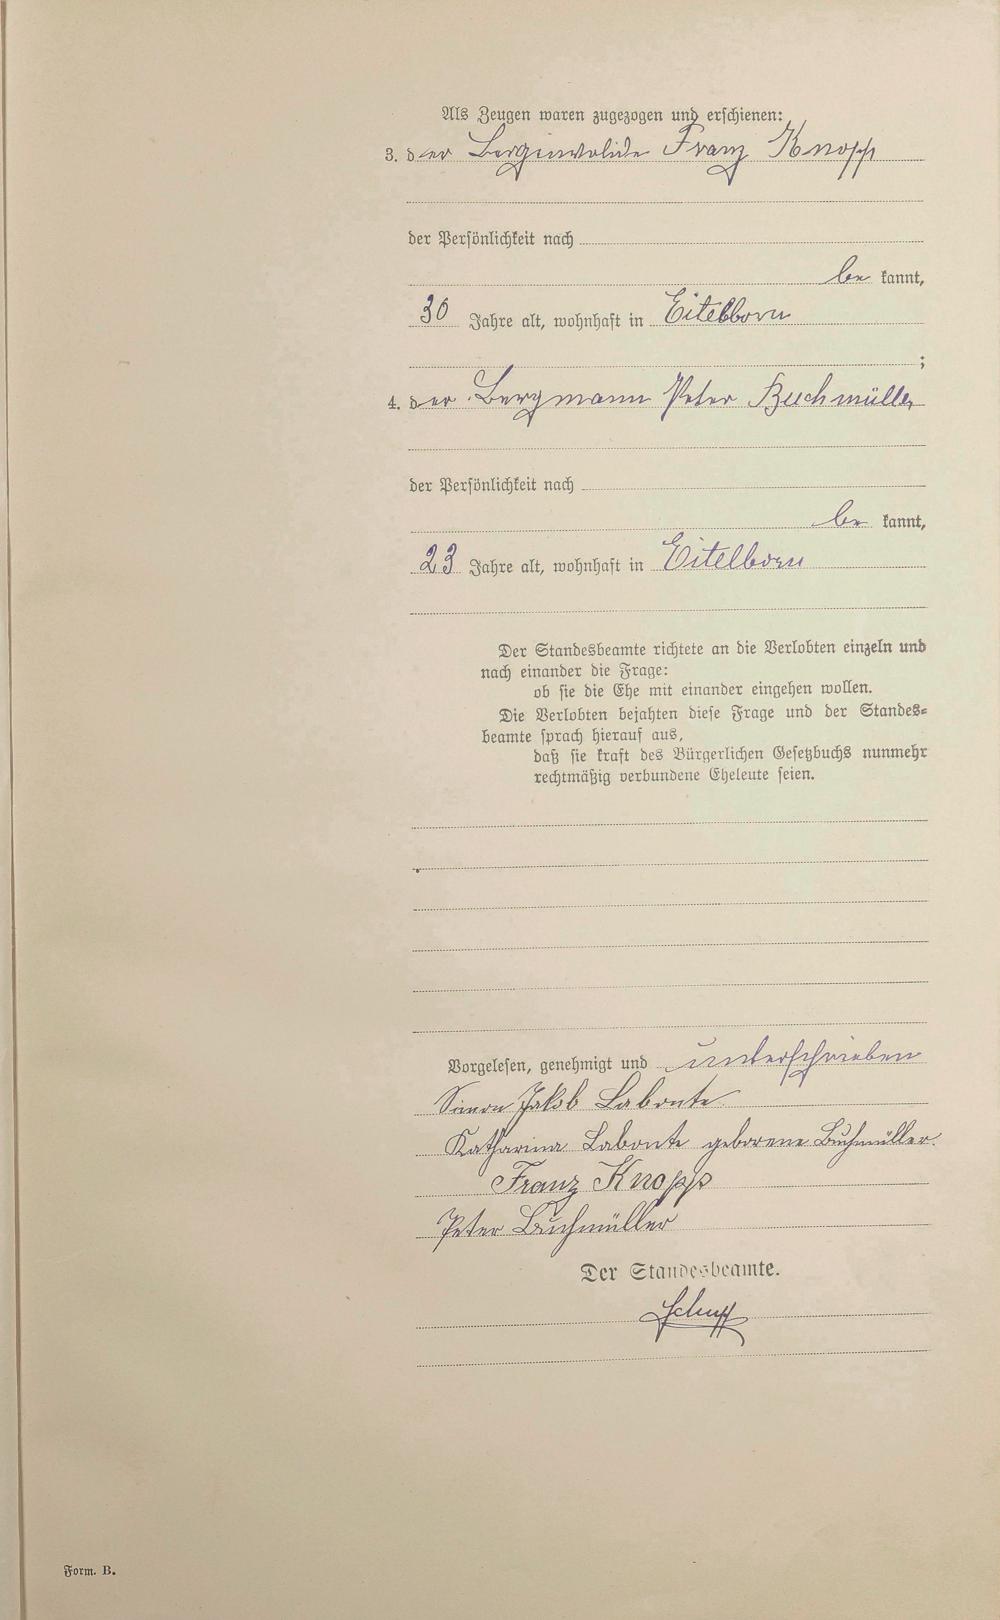 Als Zeugen waren zugezogen und erschienen:
3. der Berginvalide Franz Knopp
der Persönlichkeit nach
be kannt,
30 Jahre alt, wohnhaft in Eitelborn
;
4. der Bergmann Peter Buchmüller
der Persönlichkeit nach
be kannt,
23 Jahre alt, wohnhaft in Eitelborn
Der Standesbeamte richtete an die Verlobten einzeln und
nach einander die Frage:
ob sie die Ehe mit einander eingehen wollen.
Die Verlobten bejahten diese Frage und der Standes-
beamte sprach hierauf aus,
daß sie kraft des Bürgerlichen Gesetzbuchs nunmehr
rechtmäßig verbundene Eheleute seien.
Vorgelesen, genehmigt und unterschrieben
Simon Jakob Labonte
Katharina Labonte geborene Buchmüller.
Franz Knopp
Peter Buchmüller
Der Standesbeamte.
Form. B.